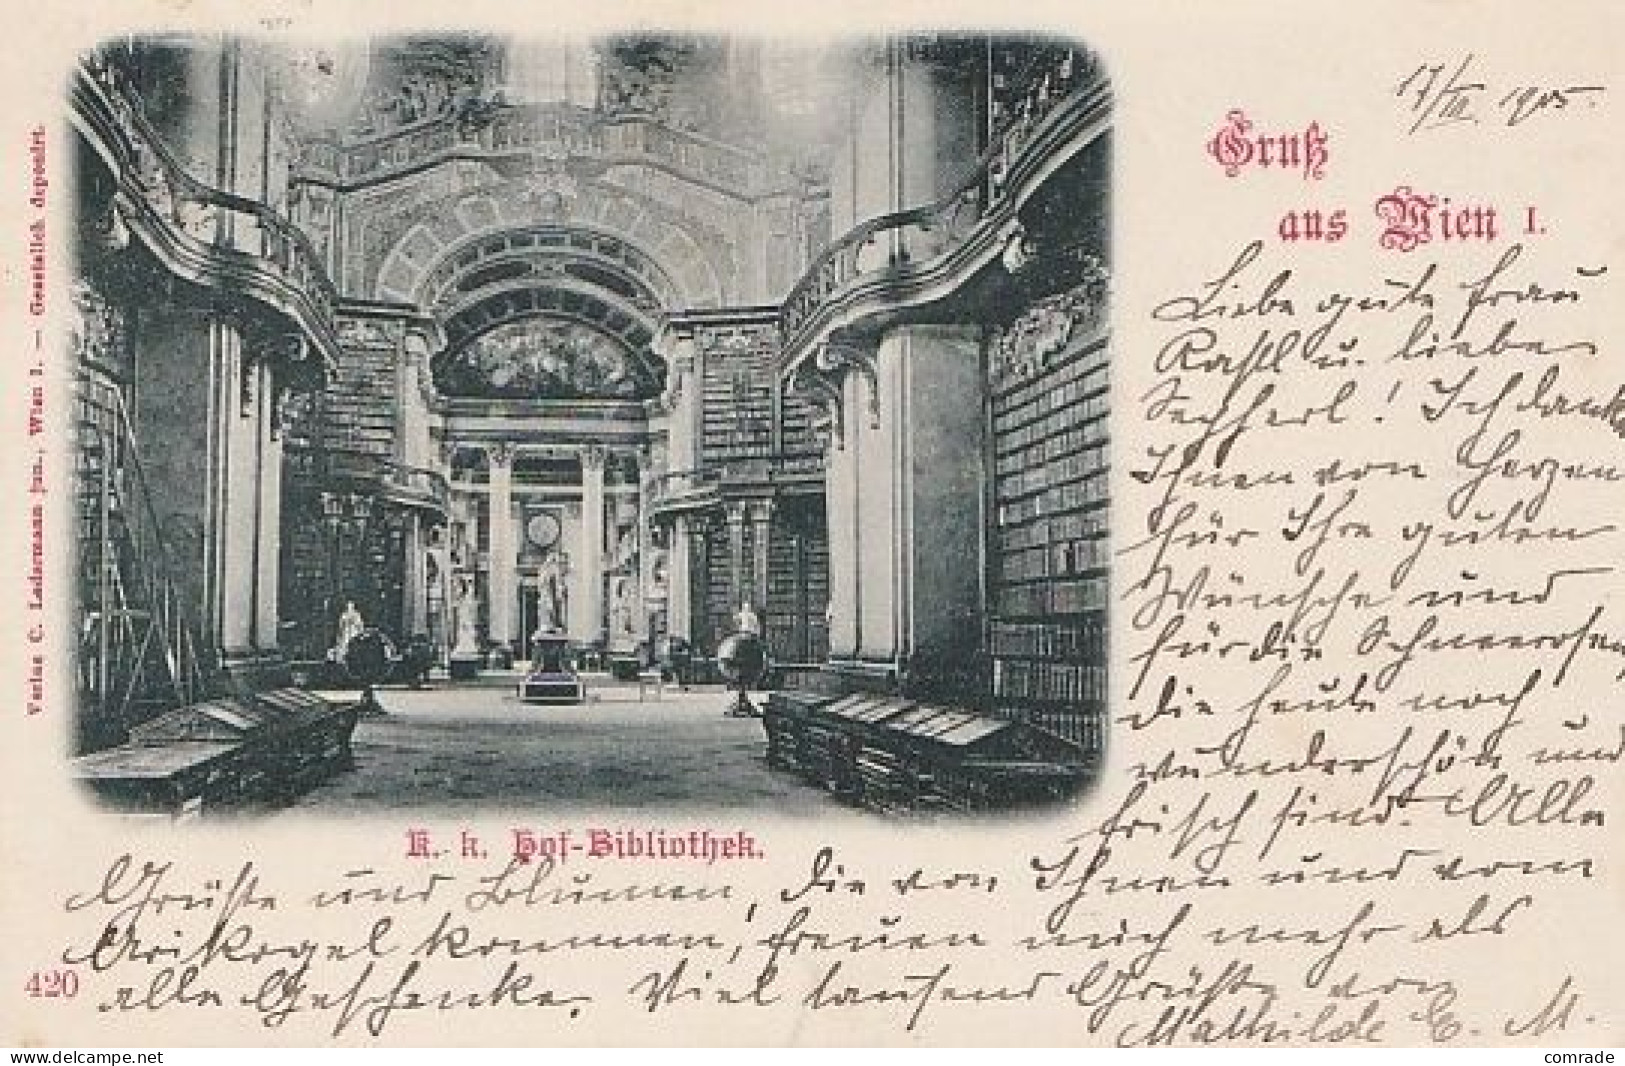 17/III. 1905.
Gruß
aus Wien I.
Verlag C. Ledermann jun., Wien I. — Gesetzlich deponirt.
Liebe gute Frau
Rastl u. lieber
! Ich danke
Ihnen von Herzen
für Ihre guten
Wünsche und
für die Schneerosen,
die heute noch
wunderschön und
frisch sind. Alle
K. k. Hof-Bibliothek.
Grüße und Blumen, die von Ihnen und vom
Arikogel kommen, freuen mich mehr als
alle Geschenke. Viel tausend Grüße von
420
Mathilde E. M.
www.delcampe.net
comrade